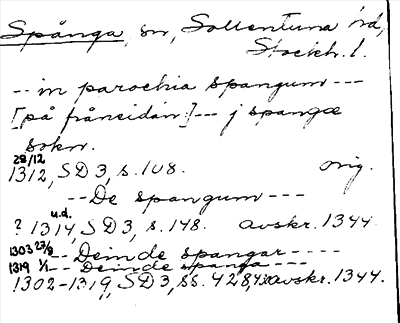 Spånga, sn, Sollentuna hd,
Stockh. l.
-- in parochia spangum ---
[på frånsidan:] --- j spangæ
sokn.
28/12
1312, SD 3, s. 108. orig.
-- De spangum ---
u.d.
? 1314, SD 3, s. 148. avskr. 1344
1303 27/9 -- Deinde spangar -----
1319 1/1 -- Deinde spanga ---
1302-1319, SD 3, ss. 428, 430 avskr. 1344.